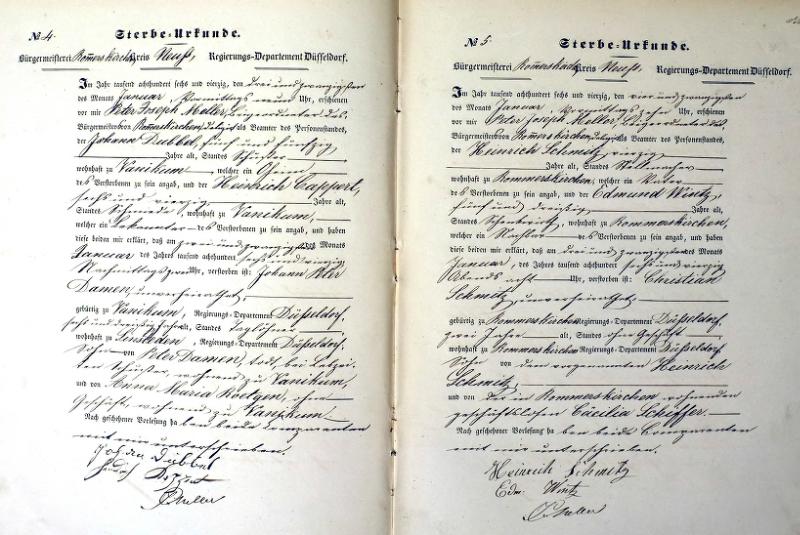 № 4.
Sterbe-Urkunde.
Bürgermeisterei Rommerskirchen Kreis Neuß, Regierungs-Departement Düsseldorf.
Im Jahr tausend achthundert sechs und vierzig, den drei und zwanzigsten
des Monats Januar, Vormittags neun Uhr, erschienen
vor mir Peter Joseph Meller, Beigeordneter des
Bürgermeisters von Rommerskirchen, als Beamter des Personenstandes,
der Johann Dübbel, fünf und fünfzig
Jahre alt, Standes Schuster
wohnhaft zu Vanikum, welcher ein Oheim
des Verstorbenen zu sein angab, und der Heinrich
sechs und vierzig Jahre alt,
Standes Schmied, wohnhaft zu Vanikum,
welcher ein Bekannter des Verstorbenen zu sein angab, und haben
diese beiden mir erklärt, daß am zwei und zwanzigsten des Monats
Januar des Jahres tausend achthundert sechs und vierzig
Nachmittags zwei Uhr, verstorben ist: Johann Peter
Damen, unverheirathet,
gebürtig zu Vanikum, Regierungs-Departement Düsseldorf,
sechs und dreißig Jahre alt, Standes Taglöhner
wohnhaft zu Sinsteden, Regierungs-Departement Düsseldorf,
Sohn von Peter Damen, todt, bei Lebzei-
ten Schuster, wohnend zu Vanikum,
und von Anna Maria Roetgen, ohne
Geschäft, wohnend zu Vanikum
Nach geschehener Vorlesung haben beide Comparenten
mit mir unterschrieben.
Johan Dübbel
Meller
№ 5.
Sterbe-Urkunde.
Bürgermeisterei Rommerskirchen Kreis Neuß, Regierungs-Departement Düsseldorf.
Im Jahr tausend achthundert sechs und vierzig, den vier und zwanzigsten
des Monats Januar, Vormittags zehn Uhr, erschienen
vor mir Peter Joseph Meller, Beigeordneter des
Bürgermeisters von Rommerskirchen, als Beamter des Personenstandes,
der Heinrich Schmitz, vierzig
Jahre alt, Standes Stellmacher
wohnhaft zu Rommerskirchen, welcher ein Vater
des Verstorbenen zu sein angab, und der Edmund Wintz,
fünf und dreißig Jahre alt,
Standes Schenkwirth, wohnhaft zu Rommerskirchen,
welcher ein Nachbar des Verstorbenen zu sein angab, und haben
diese beiden mir erklärt, daß am drei und zwanzigsten des Monats
Januar, des Jahres tausend achthundert sechs und vierzig
Abends acht Uhr, verstorben ist: Christian
Schmitz, unverheirathet,
gebürtig zu Rommerskirchen Regierungs-Departement Düsseldorf,
zwei Jahre alt, Standes ohne Geschäft
wohnhaft zu Rommerskirchen Regierungs-Departement Düsseldorf
Sohn von dem vorgenannten Heinrich
Schmitz,
und von der in Rommerskirchen wohnenden
geschäftslosen Cäcilia Schiffer.
Nach geschehener Vorlesung haben beide Comparenten
mit mir unterschrieben.
Heinrich Schmitz
Edm. Wintz
Meller